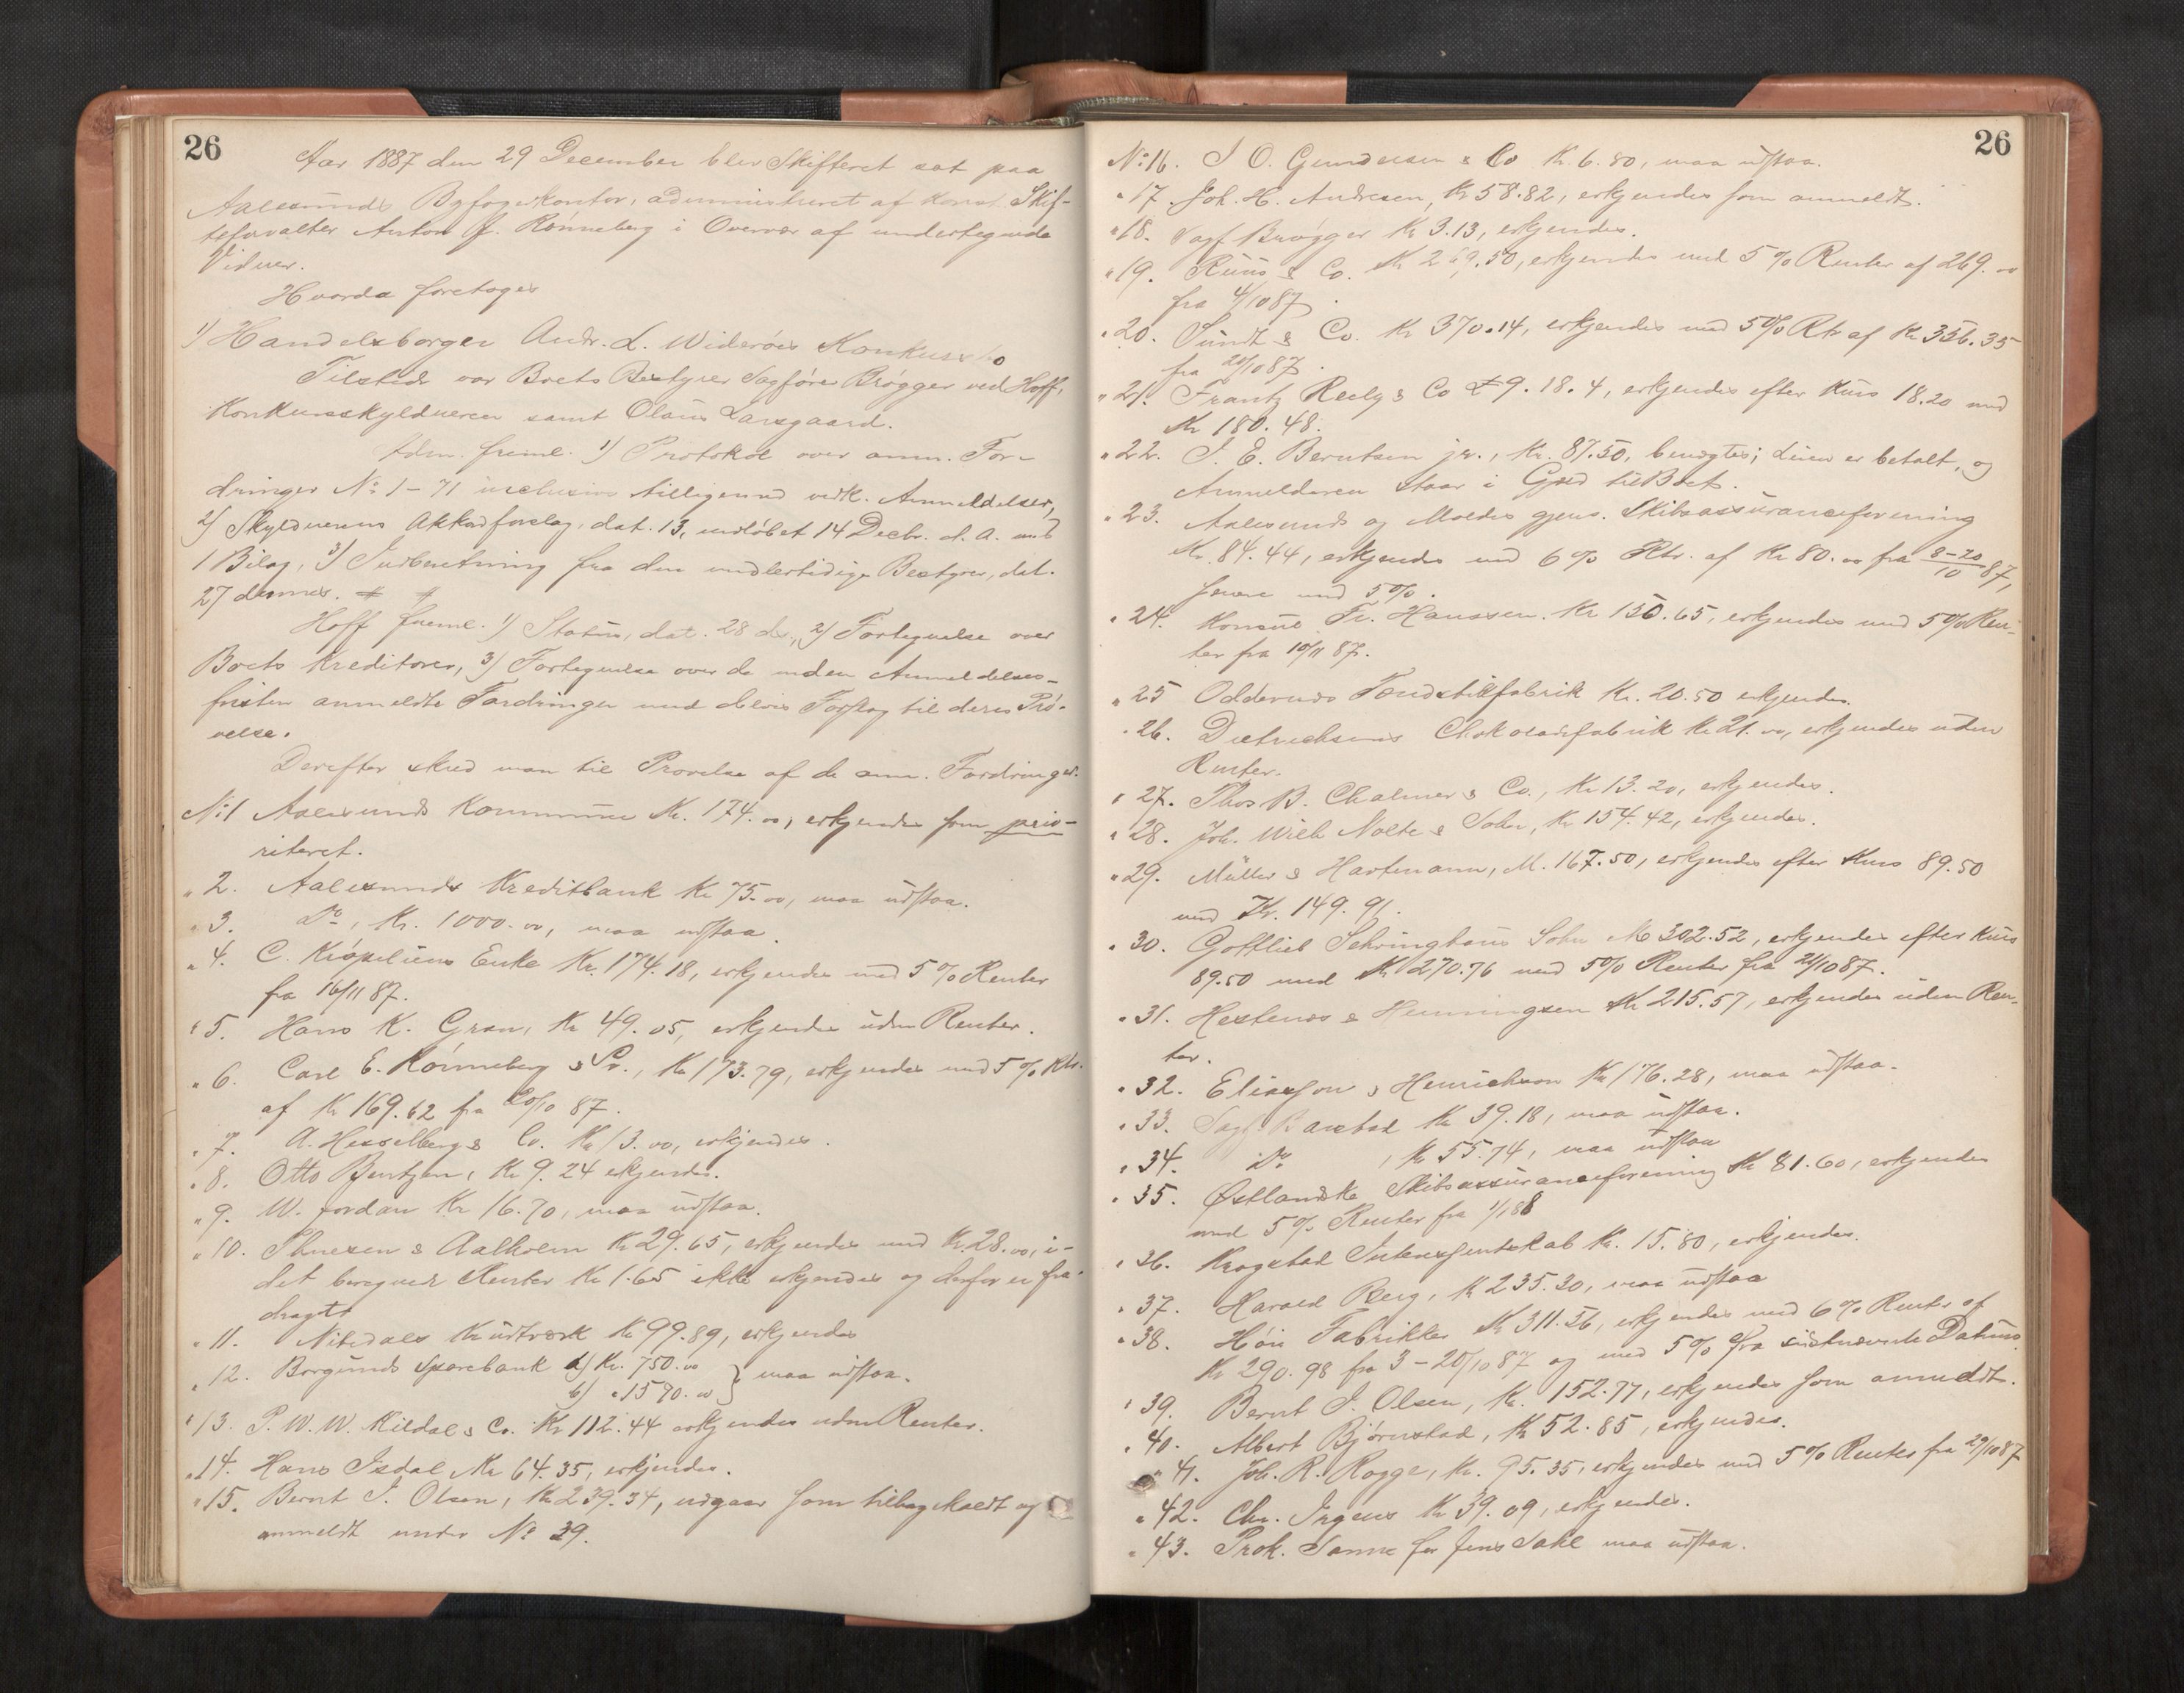 26
Aar 1887 den 29 December blev Skifteret sat paa
Aalesunds Byfogedkontor, administreret af konst. Skif-
teforvalter Anton J. Rønneberg i Overvær af undertegnede
Vidner.
Hvorda foretoges
1) Handelsborger Andr. L. Widerøes Konkursbo
Tilstede var Boets Bestyrer Sagfører Brøgger ved Hoff,
Konkursskyldneren samt Olaus Larsgaard.
Adm. freml. 1) Protokol over anm. For-
dringer No 1-71 inclusive tilligemed vedk. Anmeldelser,
2) Skyldnerens Akkordforslag, dat. 13, indløbet 14 Decbr. d. A. med
1 Bilag, 3) Indberetning fra den midlertidige Bestyrer, dat.
27 dennes.
Hoff freml. 1) Status, dat. 28 ds., 2) Fortegnelse over
Boets Kreditorer, 3) Fortegnelse over de inden Anmeldelses-
fristen anmeldte Fordringer med Forslag til deres Prø-
velse.
Derefter skred man til Prøvelse af de anm. Fordringer.
No 1 Aalesunds Kommune Kr. 174.00, erkjendes som prio-
riteret.
" 2. Aalesunds Kreditbank Kr 75.00, maa udstaa.
" 3. Do, Kr. 1000.00, maa udstaa.
" 4. C. Krøpeliens Enke Kr. 174.18, erkjendes med 5% Renter
fra 16/11 87.
" 5. Hans K. Gran, Kr 49.05, erkjendes uden Renter.
" 6. Carl E. Rønneberg & Sr., Kr 173.79, erkjendes med 5% Rtr.
af Kr 169.62 fra 20/10 87.
" 7. A. Hesselberg & Co. Kr 13.00, erkjendes.
" 8. Otto Bentzen, Kr 9.24 erkjendes.
" 9. W. Jordan Kr 16.70, maa udstaa.
" 10. & Aalholm Kr 29.65, erkjendes med Kr. 28.00, i-
det beregnede Renter Kr 1.65 ikke erkjendes og derfor er fra-
dragt.
" 11. Nitedals Krudtværk Kr 99.89, erkjendes
" 12. Borgunds Sparebank a) Kr. 750.00 } maa udstaa.
b) " 1590.00
" 13. P. W. W. Kildal & Co. Kr 112.44 erkjendes uden Renter.
" 14. Hans Isdal Kr 64.35, erkjendes.
" 15. Bernt J. Olsen, Kr 239.34, udgaar som tilbagekaldt og
anmeldt under No 39.
26
No 16. J O. Gundersen & Co Kr. 6.80, maa udstaa.
" 17. Joh. H. Andresen, Kr 58.82, erkjendes som anmeldt.
" 18. Sagf. Brøgger Kr 3.13, erkjendes.
" 19. Ruus & Co. Kr 269.50, erkjendes med 5% Renter af 269.00
fra 4/10 87.
" 20. Sundt & Co. Kr 370.14, erkjendes med 5% Rtr af Kr 356.35
fra 20/10 87.
" 21. Frantz Reely & Co £ 9.18.4, erkjendes efter Kurs 18.20 med
Kr 180.48.
" 22. J. E. Berntsen jr., Kr. 87.50, benægtes; Leien er betalt, og
Anmelderen staar i Gjæld til Boet.
" 23. Aalesunds og Moldes gjens. Skibsassuranceforening
Kr. 84.44, erkjendes med 6% Rtr. af Kr 80.00 fra 8-20/10 87,
senere med 5%.
" 24. Konsul Fr. Hanssen. Kr 150.65, erkjendes med 5% Ren-
ter fra 10/11 87.
" 25 Oddernes Tændstikfabrik Kr. 20.50 erkjendes.
" 26. Dietrichsens Chokoladefabrik Kr 21.00, erkjendes uden
Renter.
" 27. Thos B. Chalmer & Co., Kr 13.20, erkjendes.
" 28. Joh. Wilh Nolte & Sohn, Kr 154.42, erkjendes.
" 29. Müller & Hartmann, M. 167.50, erkjendes efter Kurs 89.50
med Kr. 149.91.
" 30. Gottlieb Schringhaus Sohn M 302.52, erkjendes efter Kurs
89.50 med Kr 270.76 med 5% Renter fra 21/10 87.
" 31. Hestenes & Henningsen Kr 215.57, erkjendes uden Ren-
ter.
" 32. Eliasson & Henrichson Kr 176.28, maa udstaa.
" 33. Sagf. Barstad Kr 39.18, maa udstaa.
" 34. Do, Kr 55.74, maa udstaa
" 35. Østlandske Skibsassuranceforening Kr 81.60, erkjendes
med 5% Renter fra 1/1 88
" 36. Kragstad Interessentskab Kr. 15.80, erkjendes.
" 37. Harald Berg, Kr 235.30, maa udstaa
" 38. Høie Fabrikker Kr 311.56, erkjendes med 6% Renter af
Kr 290.98 fra 3-20/10 87 og med 5% fra sidstnævnte Datum.
" 39. Bernt J. Olsen, Kr. 152.77, erkjendes som anmeldt.
" 40. Albert Bjørnstad, Kr 52.85, erkjendes.
" 41. Joh. R. Rogge, Kr. 95.35, erkjendes med 5% Renter fra 29/10 87
" 42. Chr. Irgens Kr 39.09, erkjendes.
" 43. Prok. Sanne for Jens Dahl maa udstaa.